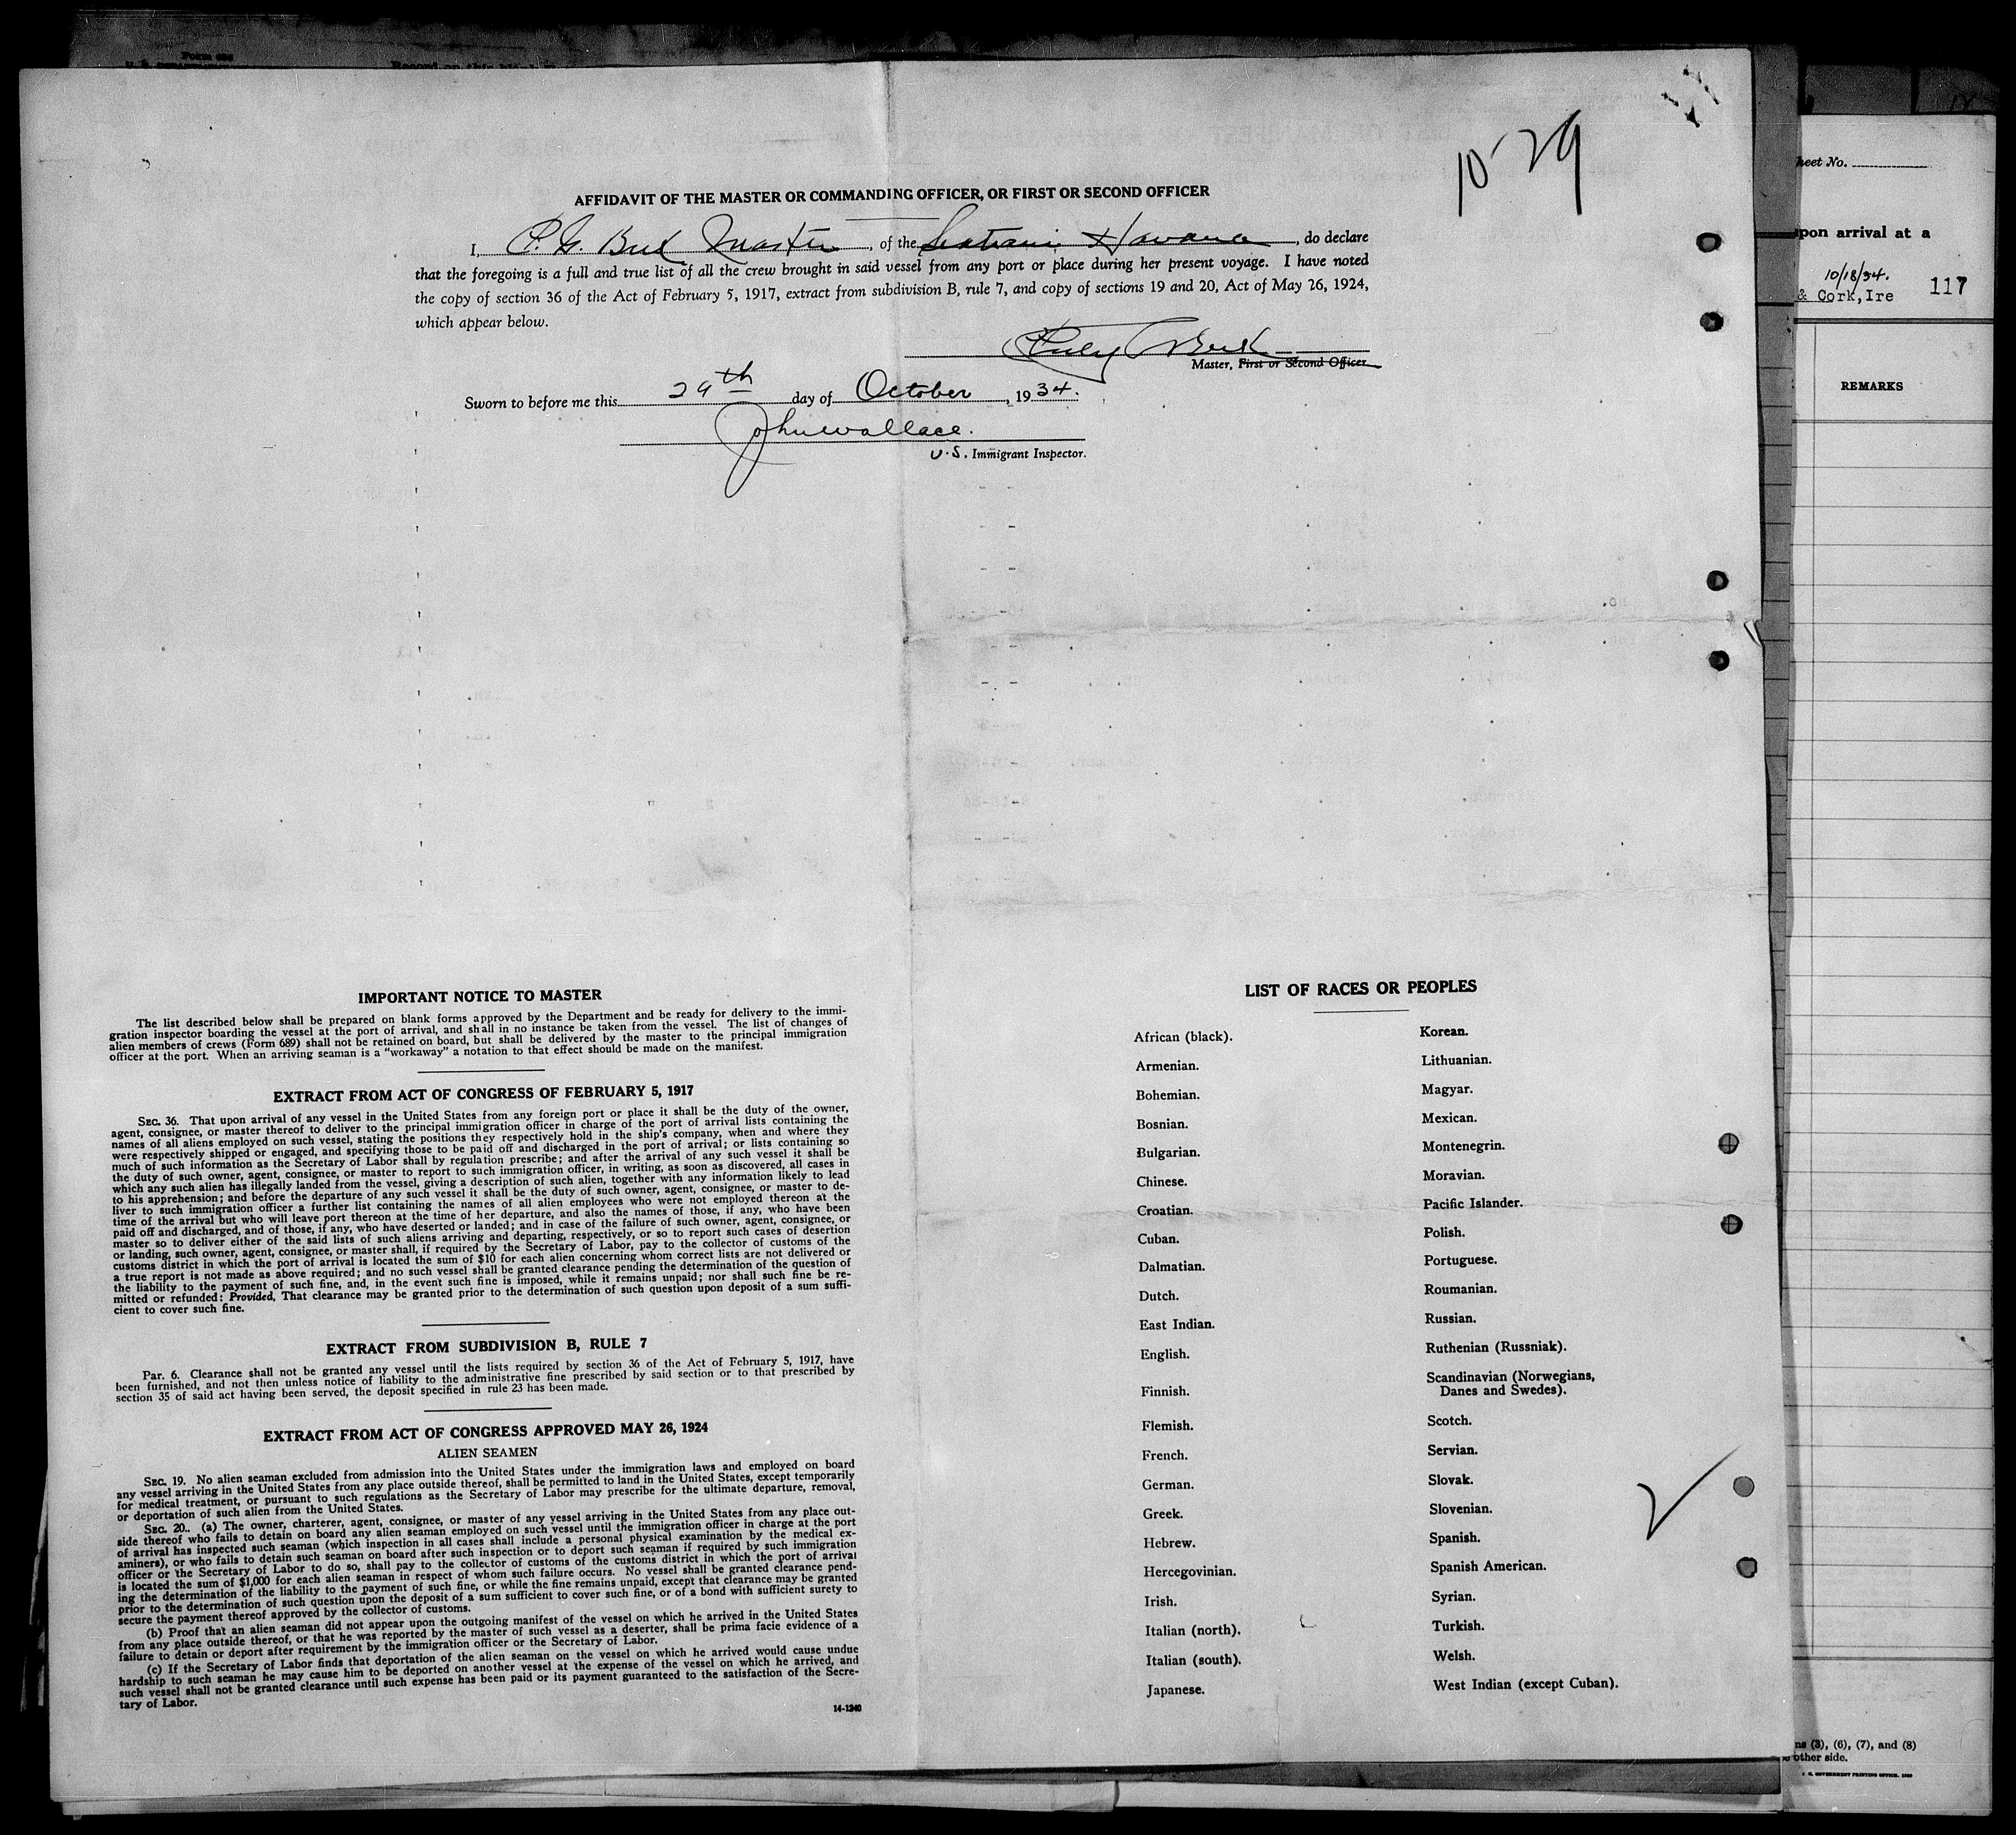 10-29
AFFIDAVIT OF THE MASTER OR COMMANDING OFFICER, OR FIRST OR SECOND OFFICER
I, Master, of the Seatrain Havana, do declare
that the foregoing is a full and true list of all the crew brought in said vessel from any port or place during her present voyage. I have noted
the copy of section 36 of the Act of February 5, 1917, extract from subdivision B, rule 7, and copy of sections 19 and 20, Act of May 26, 1924,
which appear below.
Master, First or Second Officer
Sworn to before me this 29th day of October, 1934.
John Wallace.
U.S. Immigrant Inspector.
IMPORTANT NOTICE TO MASTER
The list described below shall be prepared on blank forms approved by the Department and be ready for delivery to the immi-
gration inspector boarding the vessel at the port of arrival, and shall in no instance be taken from the vessel. The list of changes of
alien members of crews (Form 689) shall not be retained on board, but shall be delivered by the master to the principal immigration
officer at the port. When an arriving seaman is a "workaway" a notation to that effect should be made on the manifest.
EXTRACT FROM ACT OF CONGRESS OF FEBRUARY 5, 1917
SEC. 36. That upon arrival of any vessel in the United States from any foreign port or place it shall be the duty of the owner,
agent, consignee, or master thereof to deliver to the principal immigration officer in charge of the port of arrival lists containing the
names of all aliens employed on such vessel, stating the positions they respectively hold in the ship's company, when and where they
were respectively shipped or engaged, and specifying those to be paid off and discharged in the port of arrival; or lists containing so
much of such information as the Secretary of Labor shall by regulation prescribe; and after the arrival of any such vessel it shall be
the duty of such owner, agent, consignee, or master to report to such immigration officer, in writing, as soon as discovered, all cases in
which any such alien has illegally landed from the vessel, giving a description of such alien, together with any information likely to lead
to his apprehension; and before the departure of any such vessel it shall be the duty of such owner, agent, consignee, or master to de-
liver to such immigration officer a further list containing the names of all alien employees who were not employed thereon at the
time of the arrival but who will leave port thereon at the time of her departure, and also the names of those, if any, who have been
paid off and discharged, and of those, if any, who have deserted or landed; and in case of the failure of such owner, agent, consignee, or
master so to deliver either of the said lists of such aliens arriving and departing, respectively, or so to report such cases of desertion
or landing, such owner, agent, consignee, or master shall, if required by the Secretary of Labor, pay to the collector of customs of the
customs district in which the port of arrival is located the sum of $10 for each alien concerning whom correct lists are not delivered or
a true report is not made as above required; and no such vessel shall be granted clearance pending the determination of the question of
the liability to the payment of such fine, and, in the event such fine is imposed, while it remains unpaid; nor shall such fine be re-
mitted or refunded: Provided, That clearance may be granted prior to the determination of such question upon deposit of a sum suffi-
cient to cover such fine.
EXTRACT FROM SUBDIVISION B, RULE 7
Par. 6. Clearance shall not be granted any vessel until the lists required by section 36 of the Act of February 5, 1917, have
been furnished, and not then unless notice of liability to the administrative fine prescribed by said section or to that prescribed by
section 35 of said act having been served, the deposit specified in rule 23 has been made.
EXTRACT FROM ACT OF CONGRESS APPROVED MAY 26, 1924
ALIEN SEAMEN
SEC. 19. No alien seaman excluded from admission into the United States under the immigration laws and employed on board
any vessel arriving in the United States from any place outside thereof, shall be permitted to land in the United States, except temporarily
for medical treatment, or pursuant to such regulations as the Secretary of Labor may prescribe for the ultimate departure, removal,
or deportation of such alien from the United States.
SEC. 20.. (a) The owner, charterer, agent, consignee, or master of any vessel arriving in the United States from any place out-
side thereof who fails to detain on board any alien seaman employed on such vessel until the immigration officer in charge at the port
of arrival has inspected such seaman (which inspection in all cases shall include a personal physical examination by the medical ex-
aminers), or who fails to detain such seaman on board after such inspection or to deport such seaman if required by such immigration
officer or the Secretary of Labor to do so, shall pay to the collector of customs of the customs district in which the port of arrival
is located the sum of $1,000 for each alien seaman in respect of whom such failure occurs. No vessel shall be granted clearance pend-
ing the determination of the liability to the payment of such fine, or while the fine remains unpaid, except that clearance may be granted
prior to the determination of such question upon the deposit of a sum sufficient to cover such fine, or of a bond with sufficient surety to
secure the payment thereof approved by the collector of customs.
(b) Proof that an alien seaman did not appear upon the outgoing manifest of the vessel on which he arrived in the United States
from any place outside thereof, or that he was reported by the master of such vessel as a deserter, shall be prima facie evidence of a
failure to detain or deport after requirement by the immigration officer or the Secretary of Labor.
(c) If the Secretary of Labor finds that deportation of the alien seaman on the vessel on which he arrived would cause undue
hardship to such seaman he may cause him to be deported on another vessel at the expense of the vessel on which he arrived, and
such vessel shall not be granted clearance until such expense has been paid or its payment guaranteed to the satisfaction of the Secre-
tary of Labor.
14-1240
LIST OF RACES OR PEOPLES
African (black).
Armenian.
Bohemian.
Bosnian.
Bulgarian.
Chinese.
Croatian.
Cuban.
Dalmatian.
Dutch.
East Indian.
English.
Finnish.
Flemish.
French.
German.
Greek.
Hebrew.
Hercegovinian.
Irish.
Italian (north).
Italian (south).
Japanese.
Korean.
Lithuanian.
Magyar.
Mexican.
Montenegrin.
Moravian.
Pacific Islander.
Polish.
Portuguese.
Roumanian.
Russian.
Ruthenian (Russniak).
Scandinavian (Norwegians,
Danes and Swedes).
Scotch.
Servian.
Slovak.
Slovenian.
Spanish.
Spanish American.
Syrian.
Turkish.
Welsh.
West Indian (except Cuban).
heet No.
pon arrival at a
10/18/34.
& Cork, Ire 117
REMARKS
ns (3), (6), (7), and (8)
other side.